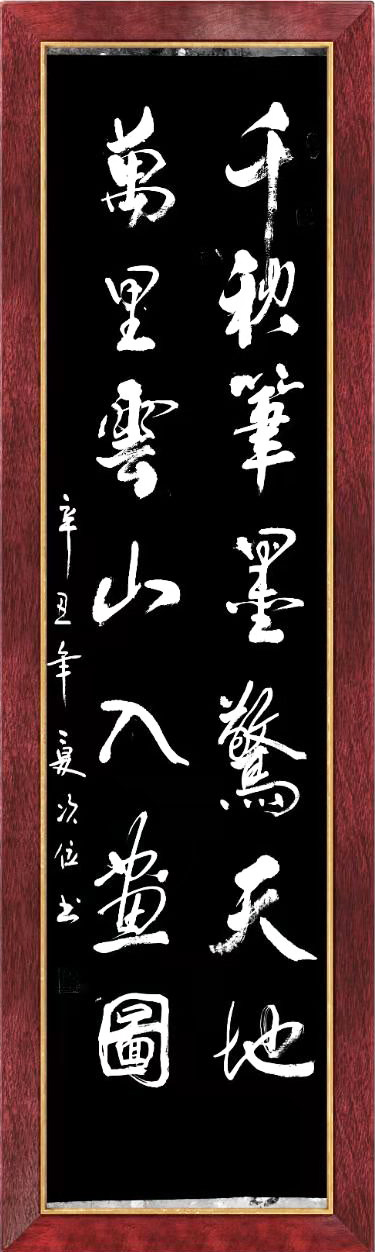 千秋筆墨驚天地
萬里雲山入畫圖
辛丑年夏次位书